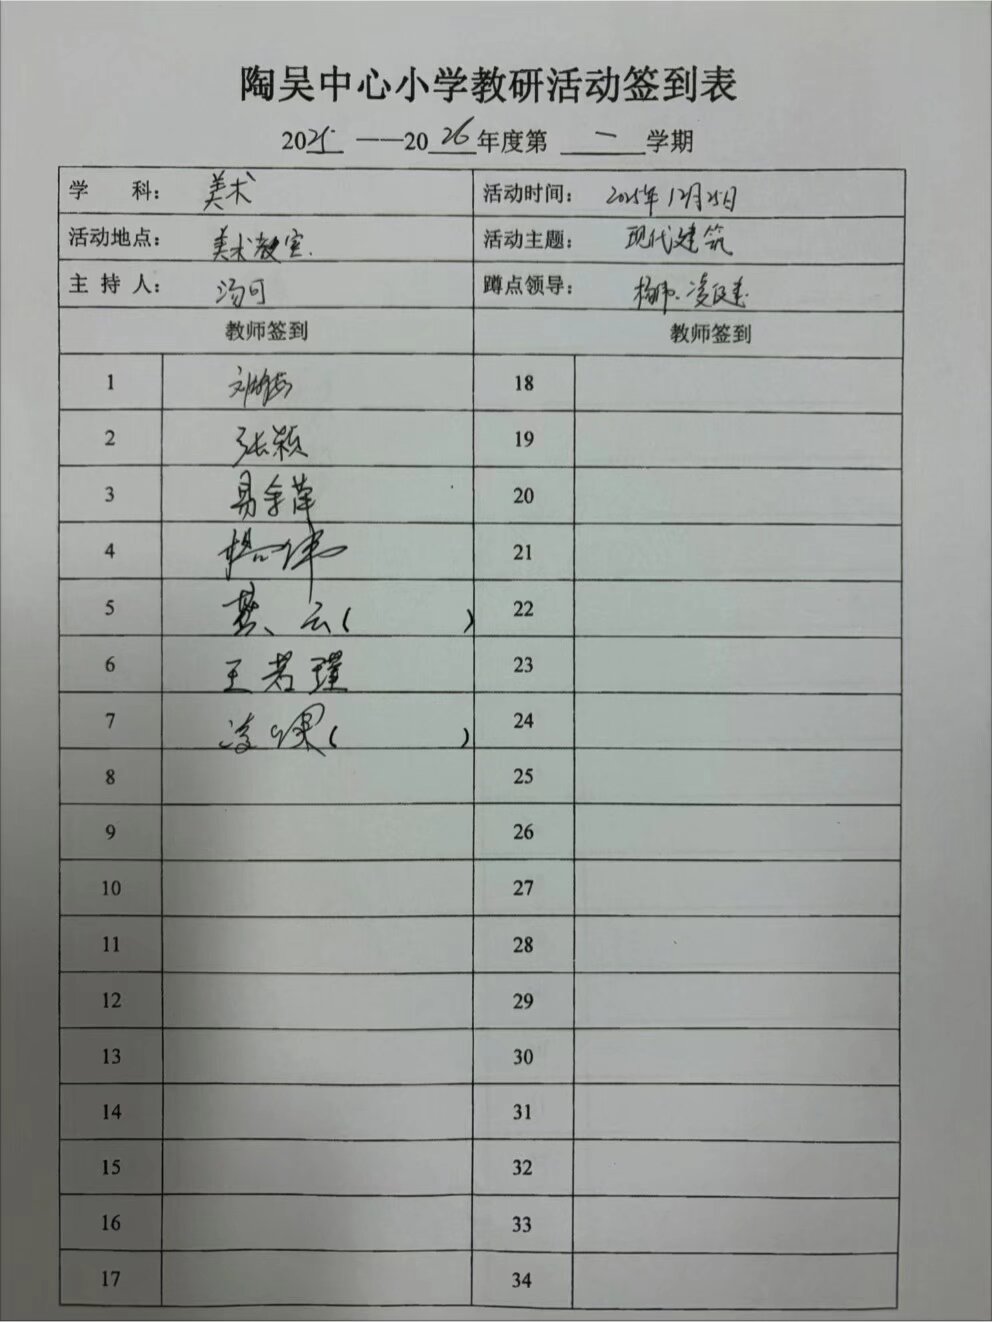 陶吴中心小学教研活动签到表
2025——2026年度第一学期
学 科： 美术 活动时间： 2025年12月25日
活动地点： 美术教室. 活动主题： 现代建筑
主 持 人： 汤可 蹲点领导： 杨伟、凌
教师签到 教师签到
1 刘 18
2 张颖 19
3 易余萍 20
4 杨伟 21
5 龚云( ) 22
6 王若瑾 23
7 凌 ( ) 24
8 25
9 26
10 27
11 28
12 29
13 30
14 31
15 32
16 33
17 34